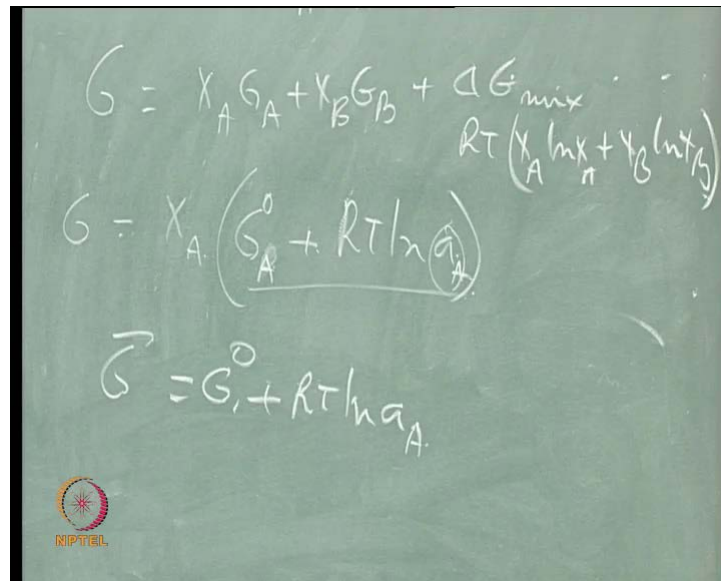 G = X_A G_A + X_B G_B + ΔG_mix
RT (X_A ln X_A + X_B ln X_B)
G = X_A (G_A^0 + RT ln a_A)
G = G^0 + RT ln a_A
NPTEL